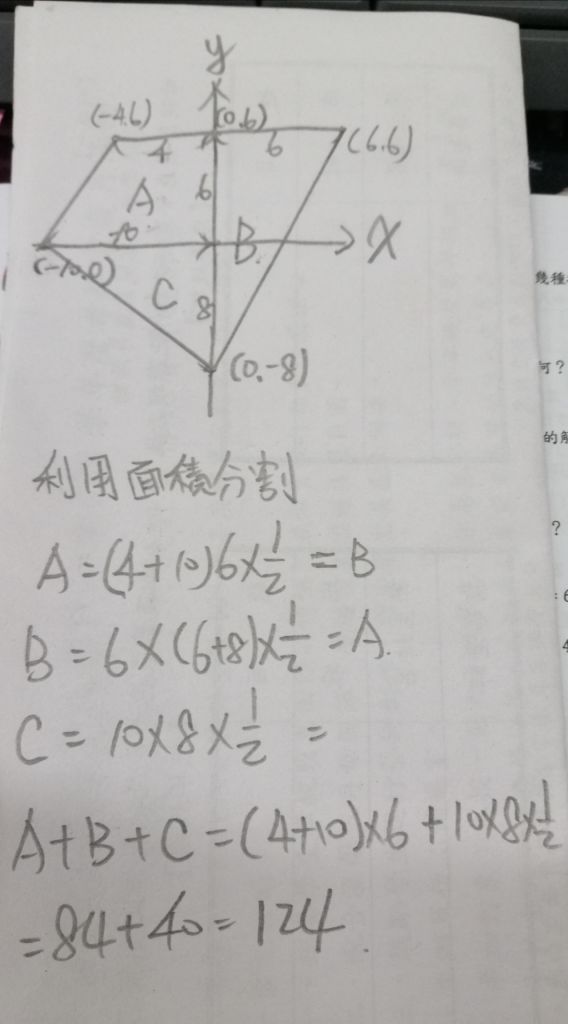 y
(-4.6)
(0.6)
(6.6)
4
6
A
6
10
B
X
(-10.0)
C
8
(0.-8)
幾種
何？
的解
？
利用面積分割
A=(4+10)6×1/2=B
B=6×(6+8)×1/2=A.
C=10×8×1/2=
A+B+C=(4+10)×6+10×8×1/2
=84+40=124.